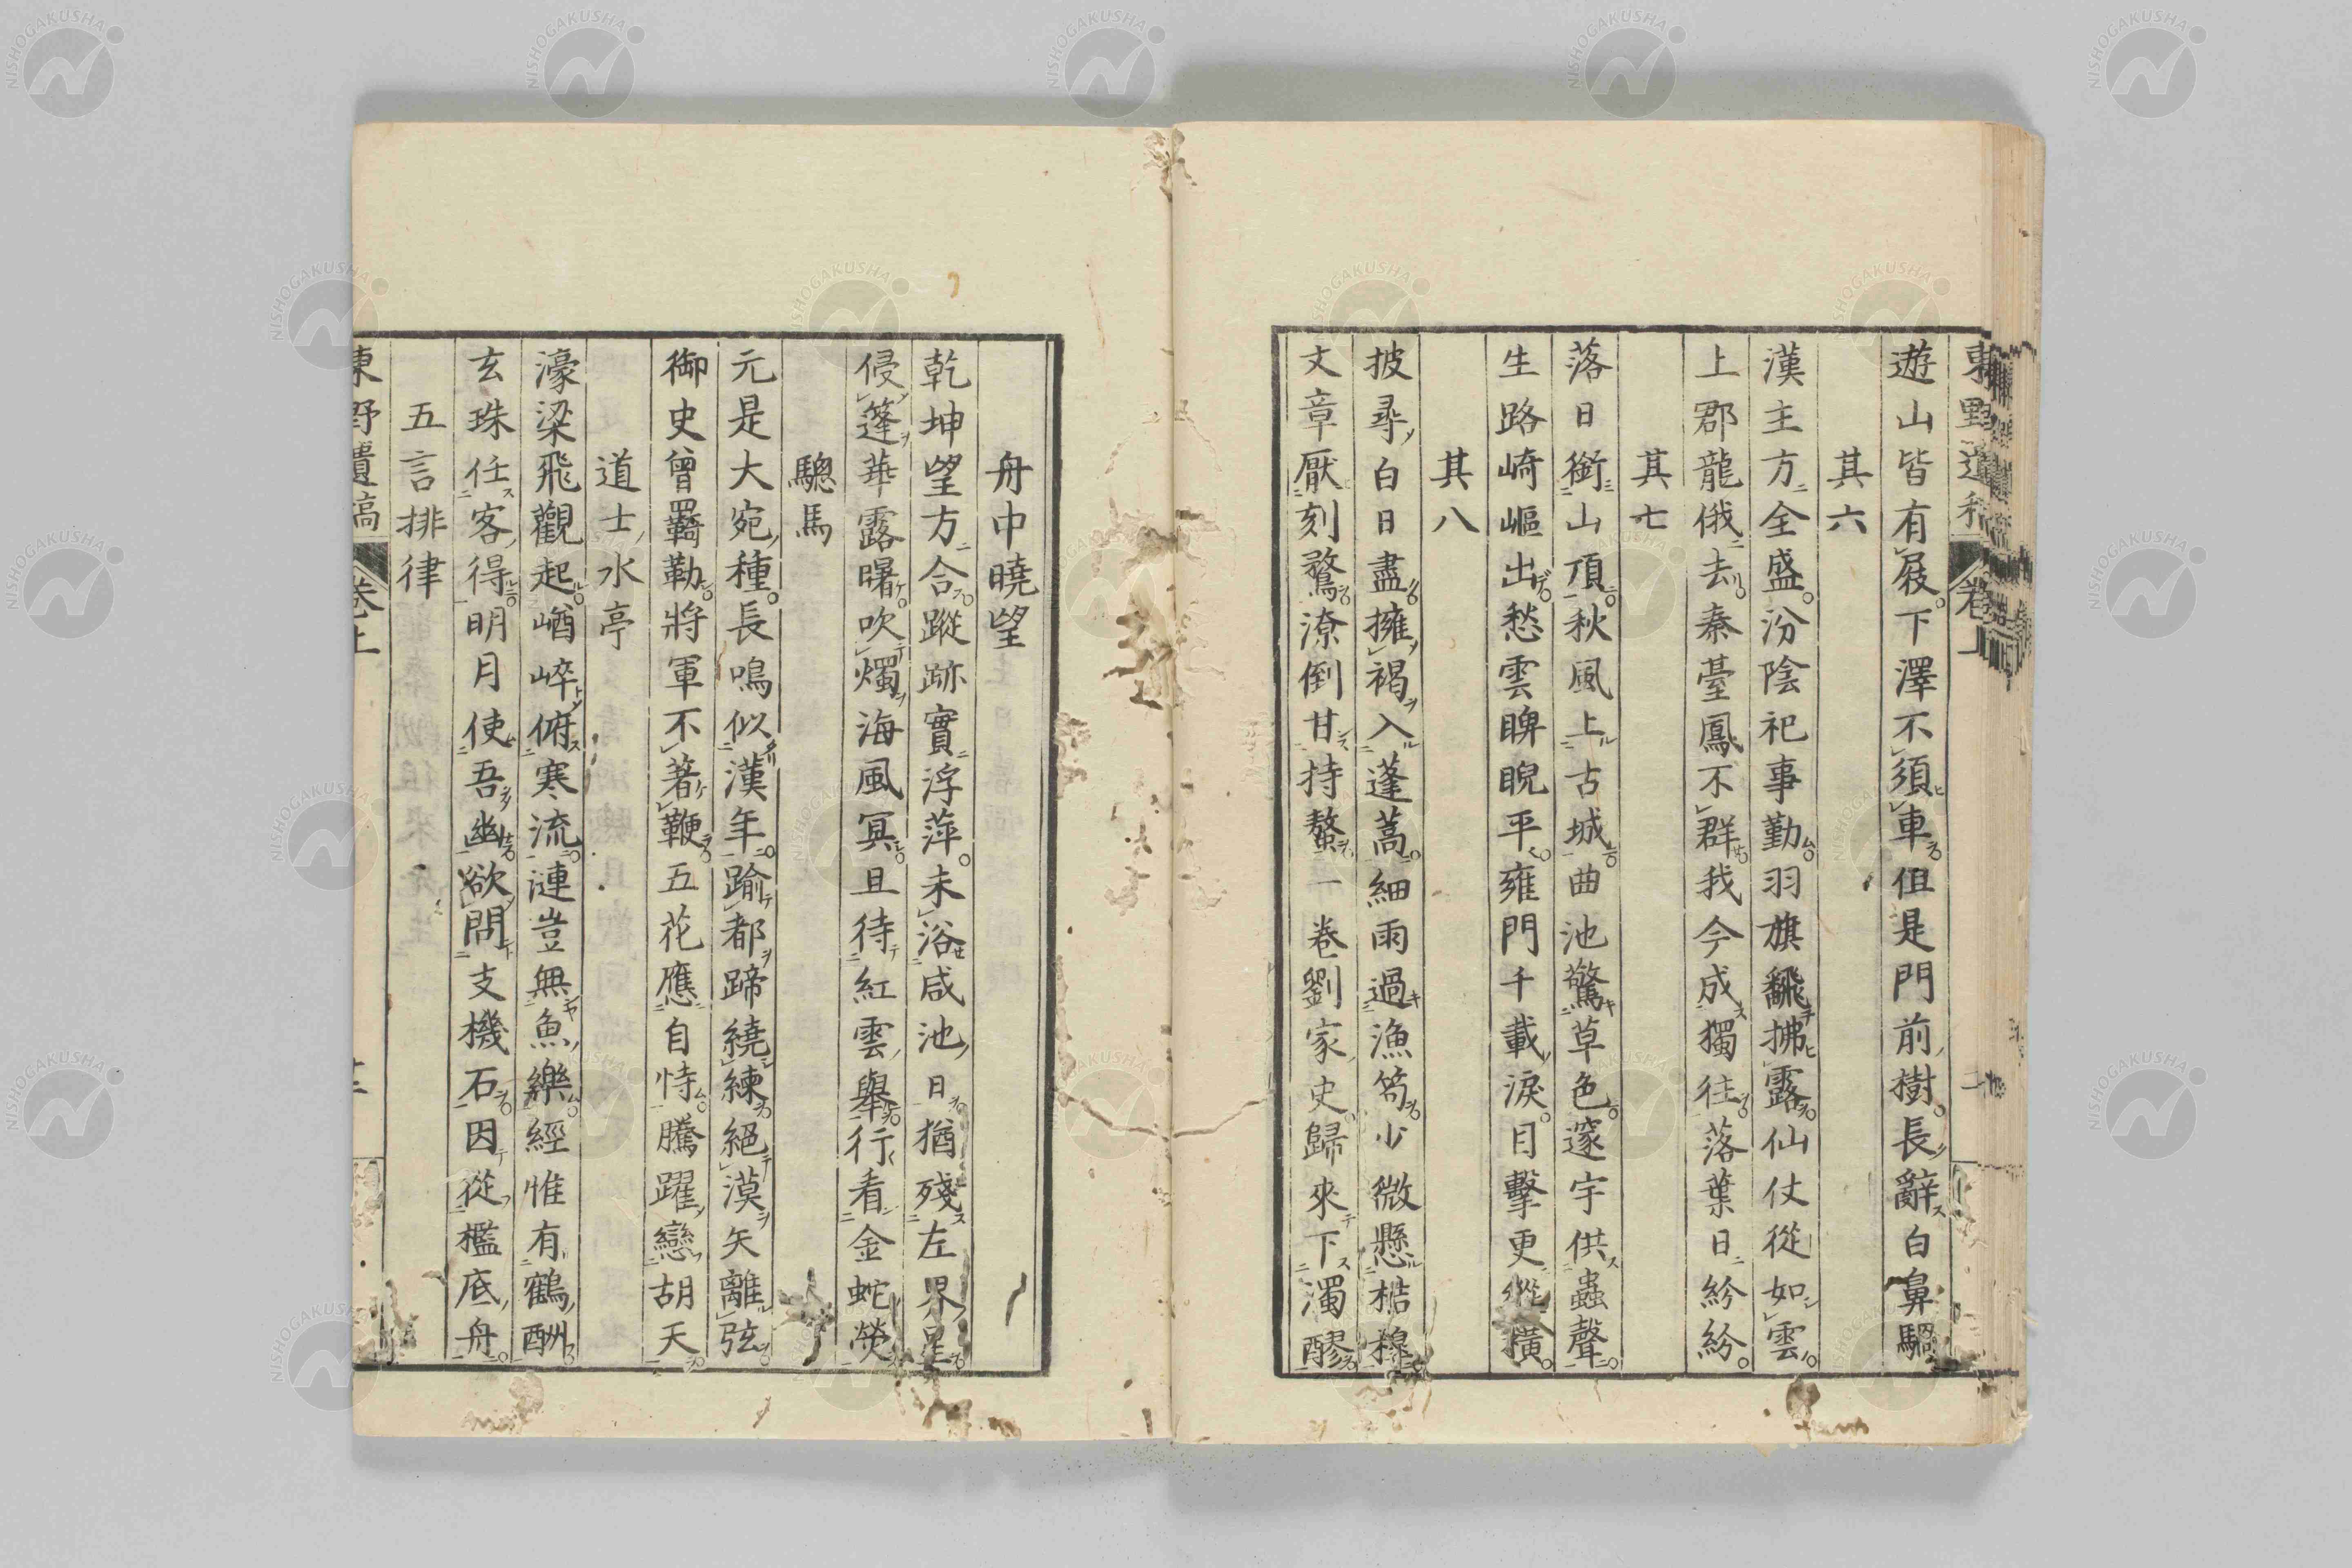 遊山皆有屐下澤不須車但是門前樹長辭白鼻騧
其六
漢主方全盛汾陰祀事勤羽旗飜拂露仙仗從如雲
上郡龍俄去秦臺鳳不群我今成獨往落葉日紛紛
其七
落日銜山頂秋風上古城曲池驚草色邃宇供蟲聲
生路崎嶇出愁雲睥睨平雍門千載淚目擊更縱橫
其八
披尋白日盡擁褐入蓬蒿細雨過漁笱少微懸桔槔
文章厭刻鶩潦倒甘持螯一卷劉家史歸來下濁醪
舟中曉望
乾坤望方合蹤跡實浮萍未浴咸池日猶殘左界星
侵篷華露曙吹燭海風冥且待紅雲舉行看金蛇熒
驄馬
元是大宛種長鳴似漢年踰都蹄繞練絕漠矢離弦
御史曾羈勒將軍不著鞭五花應自恃騰躍戀胡天
道士水亭
濠梁飛觀起崷崪俯寒流漣豈無魚樂經惟有鶴酬
玄珠任客得明月使吾幽欲問支機石因從檻底舟
五言排律
東野遺稿 卷上
NISHOGAKUSHA